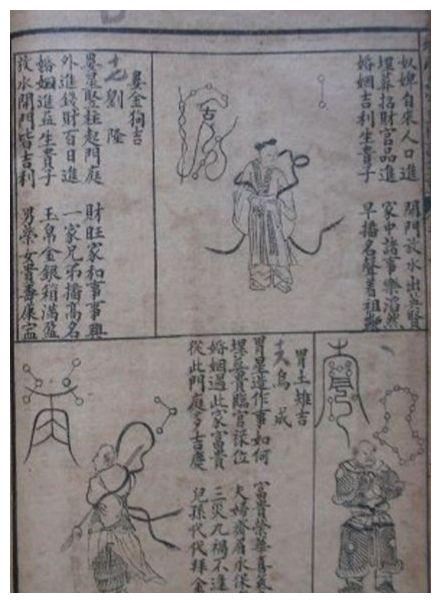 奴婢自來人口進 開門放水出英賢
埋葬招財官品進 家中諸事樂滔然
婚姻吉利生貴子 早播名聲着祖鞭
婁金狗吉
劉隆
婁星竪柱起門庭 財旺家和事事興
外進錢財百日進 一家兄弟播高名
婚姻進益生貴子 玉帛金銀箱滿盈
放水開門皆吉利 男榮女貴壽康寧
胃土雉吉
烏成
胃星造作事如何 富貴榮華喜氣
埋葬貴臨官祿位 夫婦齊眉永保
婚姻過此家富貴 三灾九禍不逢
從此門庭多吉慶 兒孫代代拜金